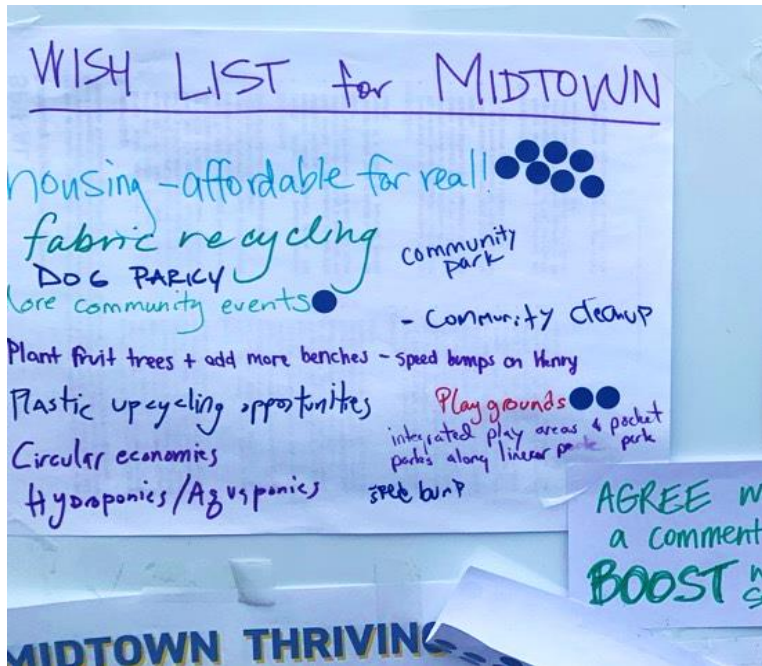 WISH LIST for MIDTOWN
housing - affordable for real!
fabric recycling
community
park
DOG PARK
ore community events
- Community cleanup
Plant fruit trees + add more benches - speed bumps on Henry
Plastic upcycling opportunities
Playgrounds
integrated play areas & pocket
parks along linear park
park
Circular economies
Hydroponics/Aquaponics
speed bump
AGREE
a comment
BOOST
MIDTOWN THRIVING